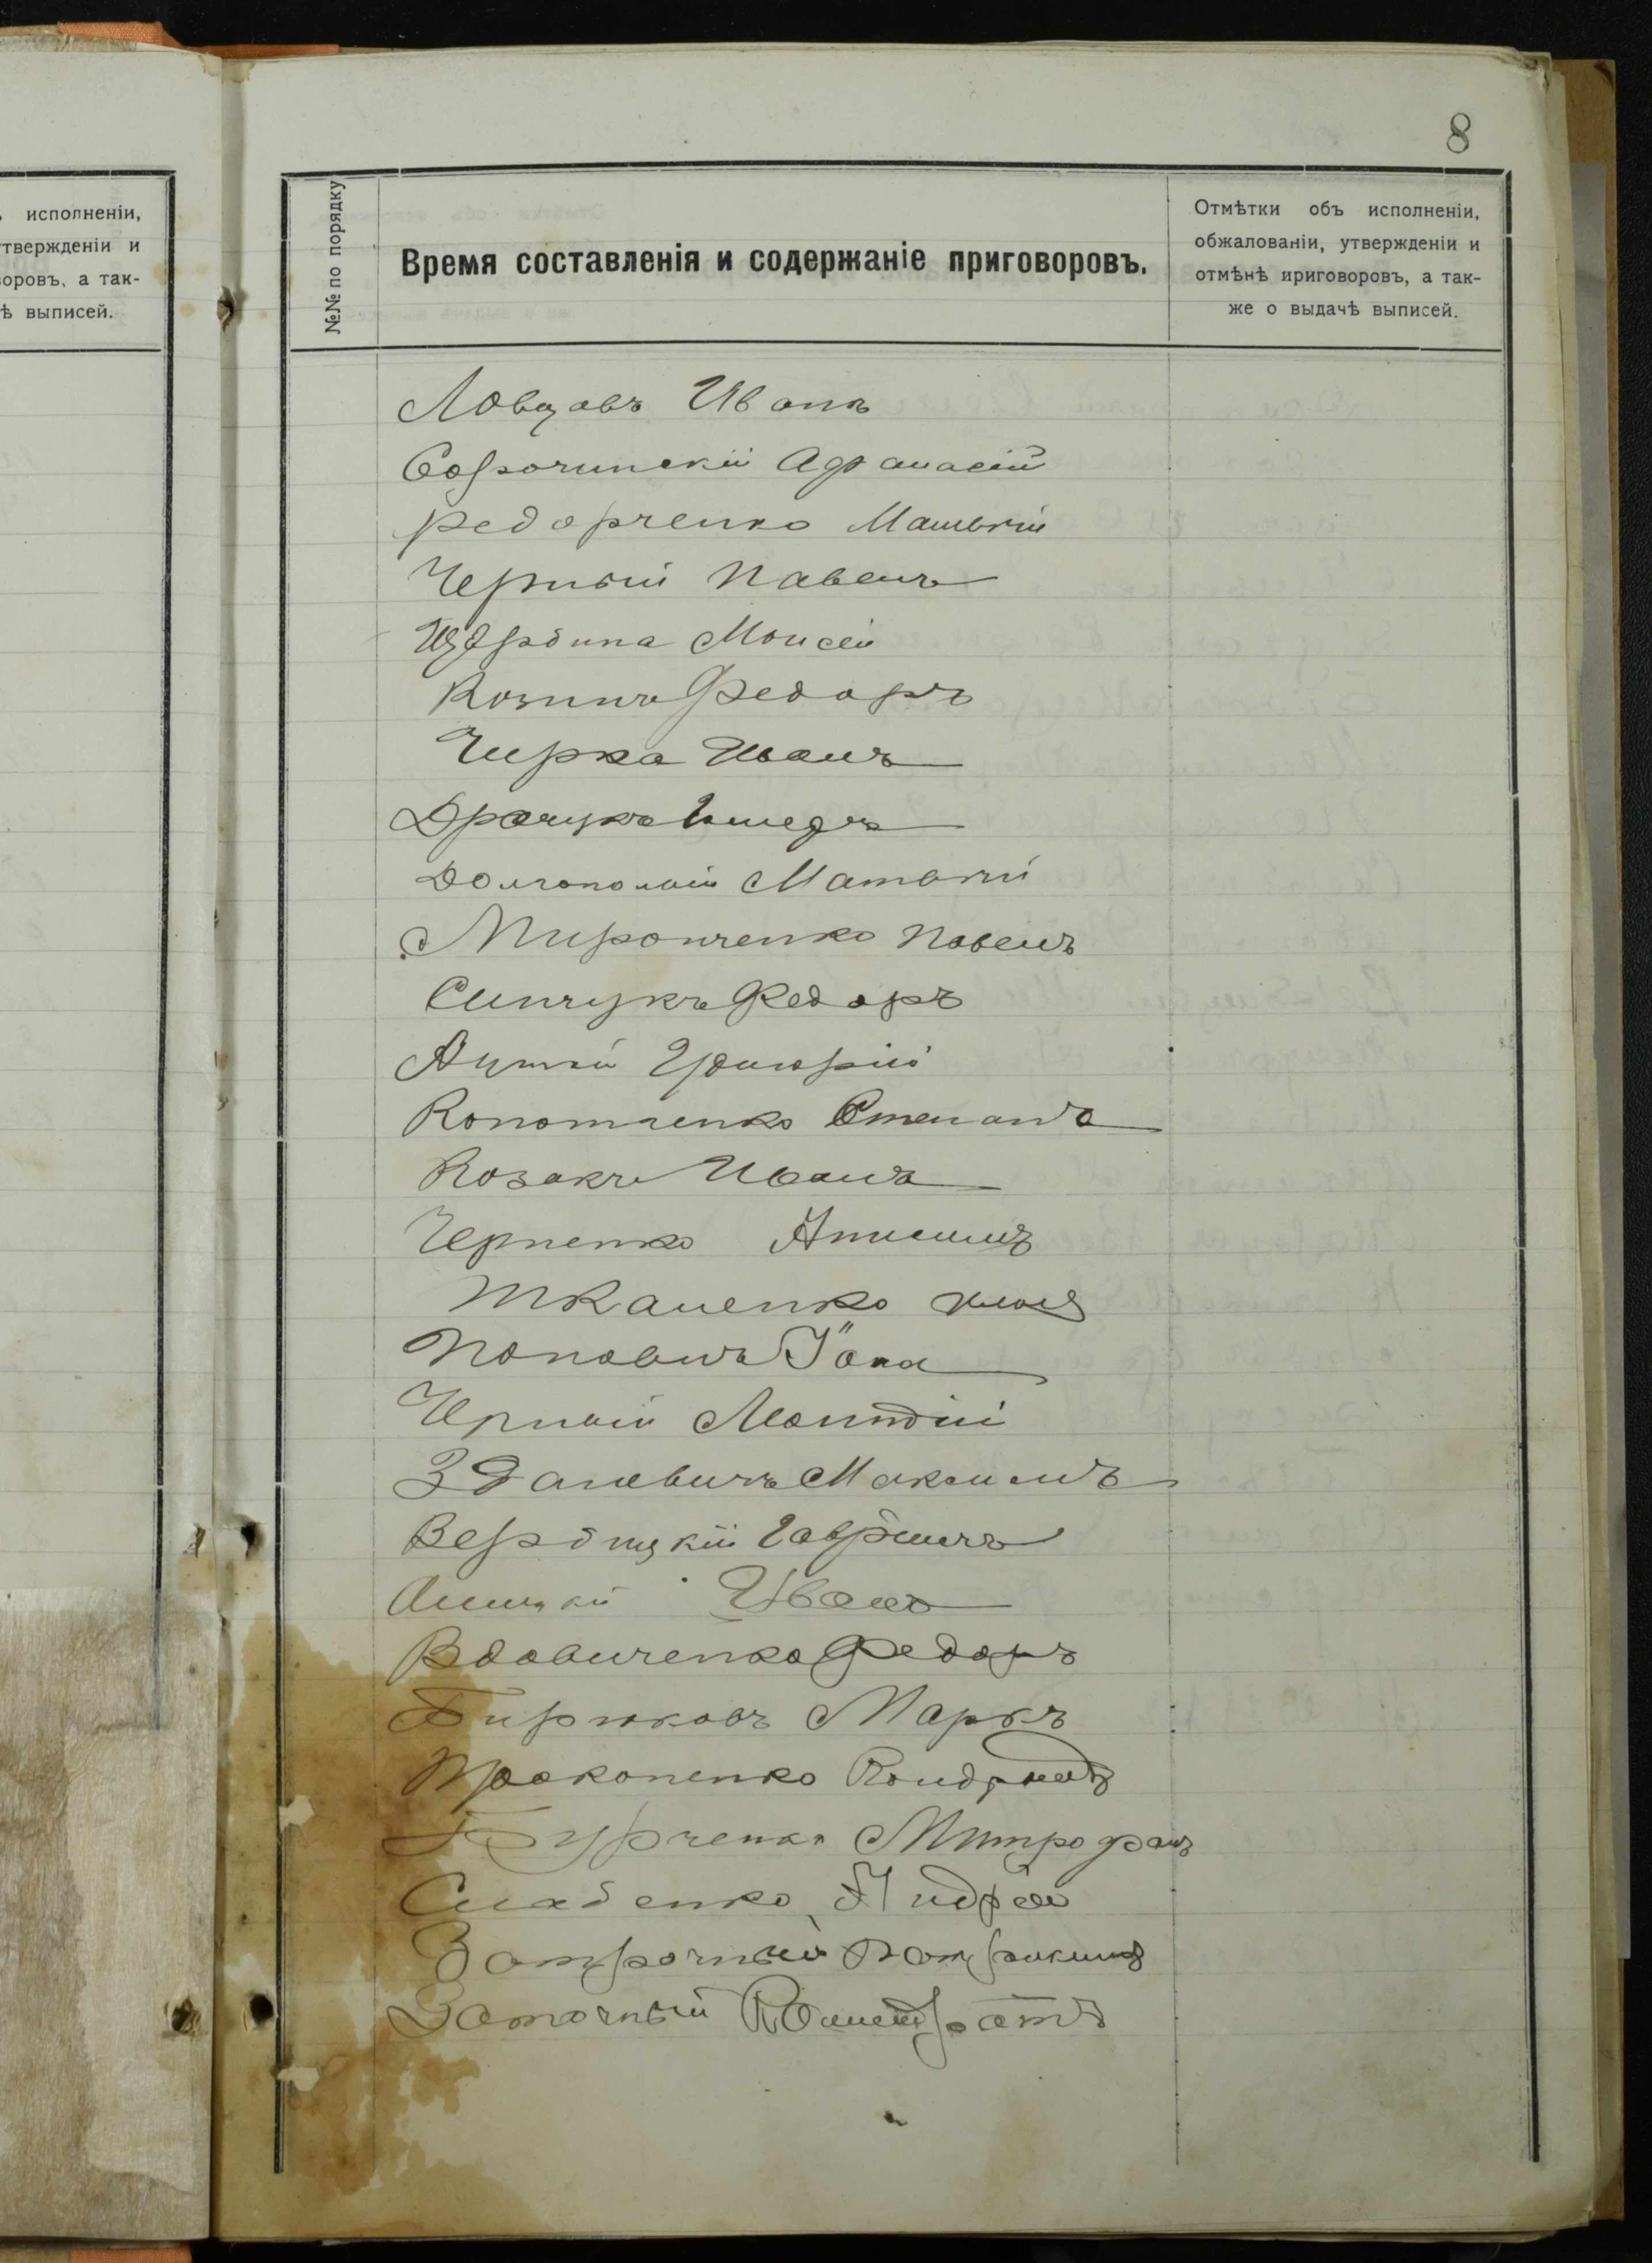 8
исполненіи,
твержденіи и
воровъ, а так-
ѣ выписей.
№№ по порядку
Время составленія и содержаніе приговоровъ.
Отмѣтки объ исполненіи,
обжалованіи, утвержденіи и
отмѣнѣ ириговоровъ, а так-
же о выдачѣ выписей.
Ловцовъ Иванъ
Аѳанасій
Федорченко Матвѣй
Черный Павелъ
Щербина Моисей
Козинъ Федоръ
Чирка Иванъ
Драчукъ
Долгополый Матвѣй
Миронченко Павелъ
Синчукъ Федоръ
Григорій
Кономченко Степанъ
Козакъ Иванъ
Черненко Анисимъ
Ткаченко Илья
Поповичъ Іона
Черный
Зданевичъ Максимъ
Вербицкій Гавріилъ
Иванъ
Вдовиченко Федоръ
Бирюковъ Маркъ
Прокопенко Кондратъ
Бурченко Митрофанъ
Слабенко Андрей
Заточный